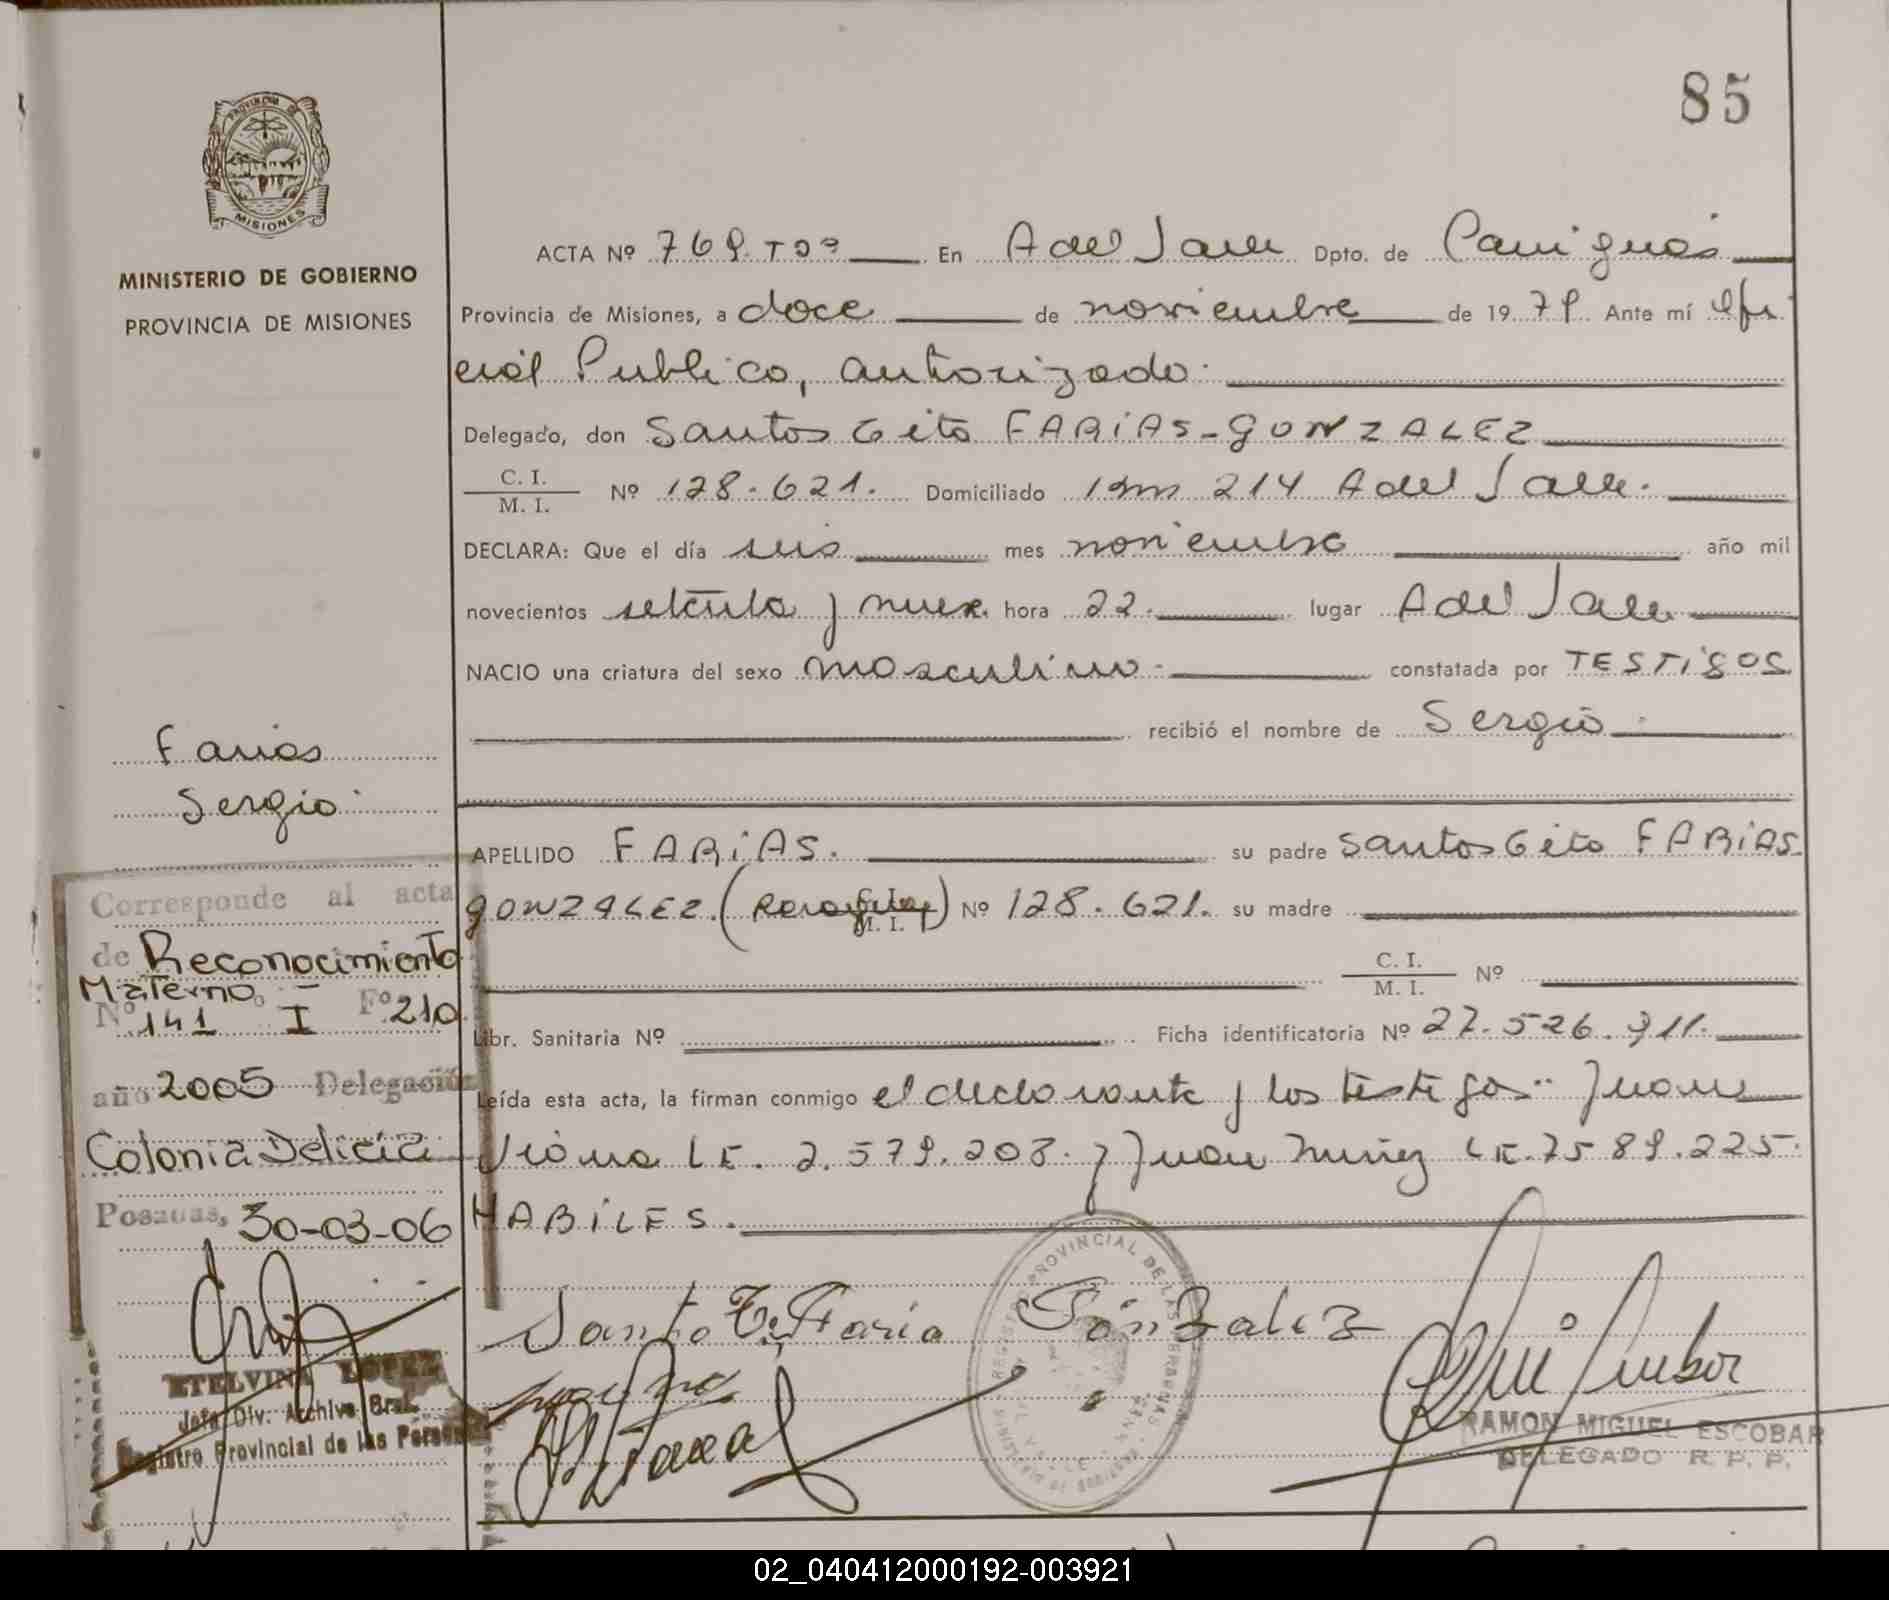 85
PROVINCIA DE
MISIONES
MINISTERIO DE GOBIERNO
PROVINCIA DE MISIONES
ACTA Nº 769. Tº 2º En A del Valle Dpto. de Cainguás
Provincia de Misiones, a doce de noviembre de 1979. Ante mí Ofi
cial Publico, autorizado.
Delegado, don Santos Tito FARIAS-GONZALEZ
C. I.
M. I. Nº 128.621. Domiciliado Km 214 A del Valle.
DECLARA: Que el día seis mes noviembre año mil
novecientos setenta y nueve. hora 22. lugar A del Valle
NACIO una criatura del sexo masculino. constatada por TESTIGOS
recibió el nombre de Sergio.
Farias
Sergio.
APELLIDO FARIAS. su padre Santos Tito FARIAS
GONZALEZ. (Paraguay) C. I. M. I. Nº 128.621. su madre
C. I.
M. I. Nº
Libr. Sanitaria Nº Ficha identificatoria Nº 27.526.911.
Leída esta acta, la firman conmigo el declarante y los testigos.. Juana
Viana LE. 2.579.203. y Juan Nuñez LE. 7589.225.
HABILES.
Corresponde al acta
de Reconocimiento
Materno
Nº 141 I Fº 210
año 2005 Delegación
Colonia Delicia
Posadas, 30-03-06
ETELVINA LOPEZ
Jefa Div. Archivo Gral.
Registro Provincial de las Personas
Santo Tito Faria Gonzalez
REGISTRO PROVINCIAL DE LAS PERSONAS
RAMON MIGUEL ESCOBAR
DELEGADO R. P. P.
02_040412000192-003921